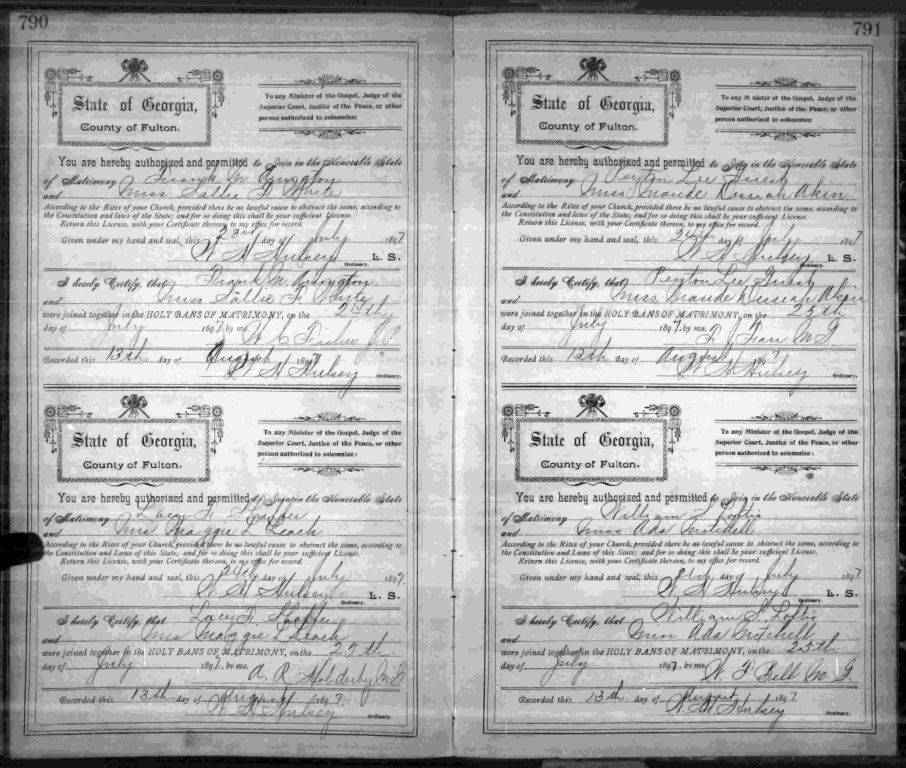 790
State of Georgia,
County of Fulton.
To any Minister of the Gospel, Judge of the
Superior Court, Justice of the Peace, or other
person authorized to solemnize:
You are hereby authorized and permitted to Join in the Honorable State
of Matrimony Frank M
and Miss Sallie F White
According to the Rites of your Church, provided there be no lawful cause to obstruct the same, according to
the Constitution and laws of the State; and for so doing this shall be your sufficient License.
Return this License, with your Certificate thereon, to my office for record.
Given under my hand and seal, this 23rd day of July 1897
W H Hulsey L. S.
Ordinary.
I hereby Certify, that Frank M.
and Miss Sallie F White
were joined together in the HOLY BANS OF MATRIMONY, on the
day of July 1897 by me,
W C J P
Recorded this 13th day of August 1897
W H Hulsey
Ordinary.
State of Georgia,
County of Fulton.
To any Minister of the Gospel, Judge of the
Superior Court, Justice of the Peace, or other
person authorized to solemnize:
You are hereby authorized and permitted to Join in the Honorable State
of Matrimony Lacy F
and Miss Maggie L Leach
According to the Rites of your Church, provided there be no lawful cause to obstruct the same, according to
the Constitution and Laws of this State; and for so doing this shall be your sufficient License.
Return this License, with your Certificate thereon, to my office for record.
Given under my hand and seal, this 24th day of July 1897.
W H Hulsey L. S.
Ordinary.
I hereby Certify, that Lacy F.
and Miss Maggie L Leach
were joined together in the HOLY BANS OF MATRIMONY, on the 25th
day of July 1897, by me,
A. R Holderby M G
Recorded this 13th day of August 1897.
W H Hulsey
Ordinary.
791
State of Georgia,
County of Fulton.
To any Minister of the Gospel, Judge of the
Superior Court, Justice of the Peace, or other
person authorized to solemnize:
You are hereby authorized and permitted to Join in the Honorable State
of Matrimony Peyton Lee
and Miss Maude Akin
According to the Rites of your Church, provided there be no lawful cause to obstruct the same, according to
the Constitution and laws of the State; and for so doing this shall be your sufficient License.
Return this License, with your Certificate thereon, to my office for record.
Given under my hand and seal, this 24th day of July 1897
W H Hulsey L. S.
Ordinary.
I hereby Certify, that Peyton Lee
and Miss Maude Akin
were joined together in the HOLY BANS OF MATRIMONY, on the 25th
day of July 1897, by me,
M G
Recorded this 13th day of August 1897
W H Hulsey
Ordinary.
State of Georgia,
County of Fulton.
To any Minister of the Gospel, Judge of the
Superior Court, Justice of the Peace, or other
person authorized to solemnize:
You are hereby authorized and permitted to Join in the Honorable State
of Matrimony William S Loftis
and Miss Ada Mitchell
According to the Rites of your Church, provided there be no lawful cause to obstruct the same, according to
the Constitution and Laws of this State; and for so doing this shall be your sufficient License.
Return this License, with your Certificate thereon, to my office for record.
Given under my hand and seal, this day of July 1897
W H Hulsey L. S.
Ordinary.
I hereby Certify, that William S. Loftis
and Miss Ada Mitchell
were joined together in the HOLY BANS OF MATRIMONY, on the 25th
day of July 1897, by me,
W. F Bell M. G
Recorded this 13th day of August 1897.
W H Hulsey
Ordinary.